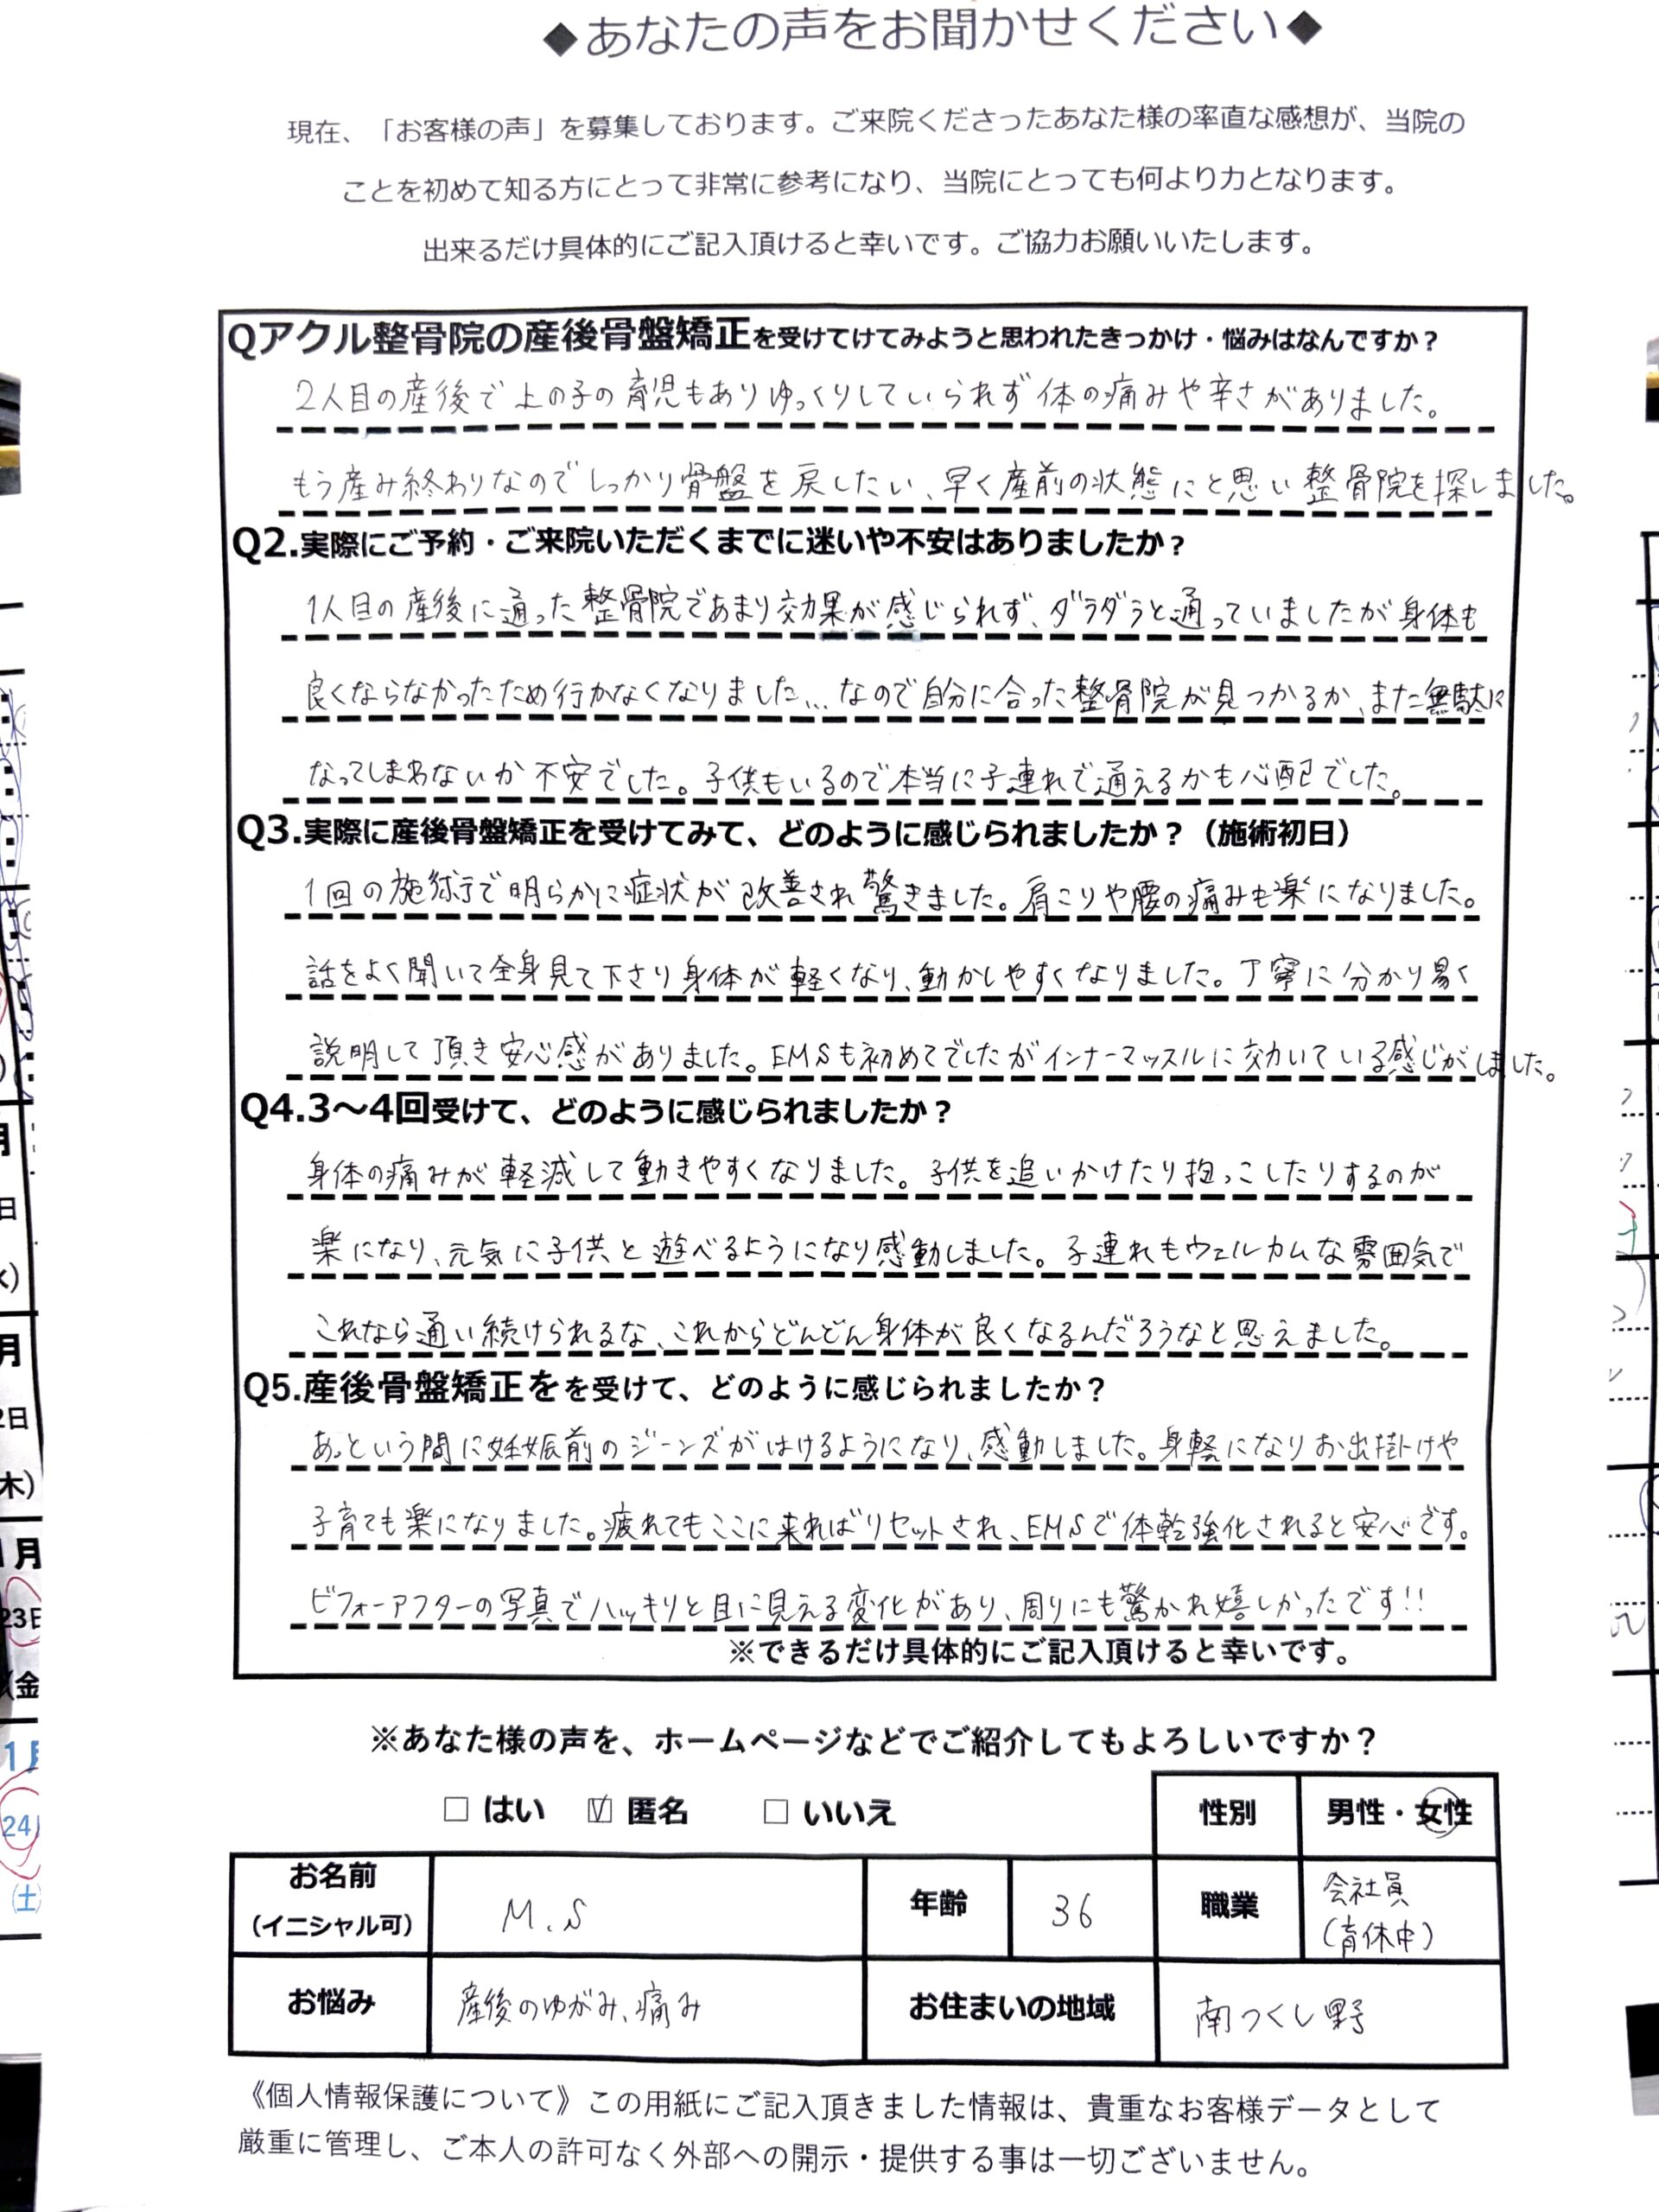 ◆あなたの声をお聞かせください◆
現在、「お客様の声」を募集しております。ご来院くださったあなた様の率直な感想が、当院の
ことを初めて知る方にとって非常に参考になり、当院にとっても何より力となります。
出来るだけ具体的にご記入頂けると幸いです。ご協力お願いいたします。
Qアクル整骨院の産後骨盤矯正を受けてけてみようと思われたきっかけ・悩みはなんですか？
2人目の産後で上の子の育児もありゆっくりしていられず体の痛みや辛さがありました。
もう産み終わりなのでしっかり骨盤を戻したい、早く産前の状態にと思い整骨院を探しました。
Q2.実際にご予約・ご来院いただくまでに迷いや不安はありましたか？
1人目の産後に通った整骨院であまり効果が感じられず、ダラダラと通っていましたが身体も
良くならなかったため行かなくなりました...なので自分に合った整骨院が見つかるか、また無駄に
なってしまわないか不安でした。子供もいるので本当に子連れで通えるかも心配でした。
Q3.実際に産後骨盤矯正を受けてみて、どのように感じられましたか？（施術初日）
1回の施術で明らかに症状が改善され驚きました。肩こりや腰の痛みも楽になりました。
話をよく聞いて全身見て下さり身体が軽くなり、動かしやすくなりました。丁寧に分かり易く
説明して頂き安心感がありました。EMSも初めてでしたがインナーマッスルに効いている感じがしました。
Q4.3～4回受けて、どのように感じられましたか？
身体の痛みが軽減して動きやすくなりました。子供を追いかけたり抱っこしたりするのが
楽になり、元気に子供と遊べるようになり感動しました。子連れもウェルカムな雰囲気で
これなら通い続けられるな、これからどんどん身体が良くなるんだろうなと思えました。
Q5.産後骨盤矯正をを受けて、どのように感じられましたか？
あっという間に妊娠前のジーンズがはけるようになり、感動しました。身軽になりお出掛けや
子育ても楽になりました。疲れてもここに来ればリセットされ、EMSで体幹強化されると安心です。
ビフォーアフターの写真でハッキリと目に見える変化があり、周りにも驚かれ嬉しかったです!!
※できるだけ具体的にご記入頂けると幸いです。
※あなた様の声を、ホームページなどでご紹介してもよろしいですか？
□ はい ☑ 匿名 □ いいえ 性別 男性・女性
お名前 (イニシャル可) M.S 年齢 36 職業 会社員 (育休中)
お悩み 産後のゆがみ、痛み お住まいの地域 南つくし野
《個人情報保護について》この用紙にご記入頂きました情報は、貴重なお客様データとして
厳重に管理し、ご本人の許可なく外部への開示・提供する事は一切ございません。
月
日
月
2日
木)
月
23日
(金
24
(土)